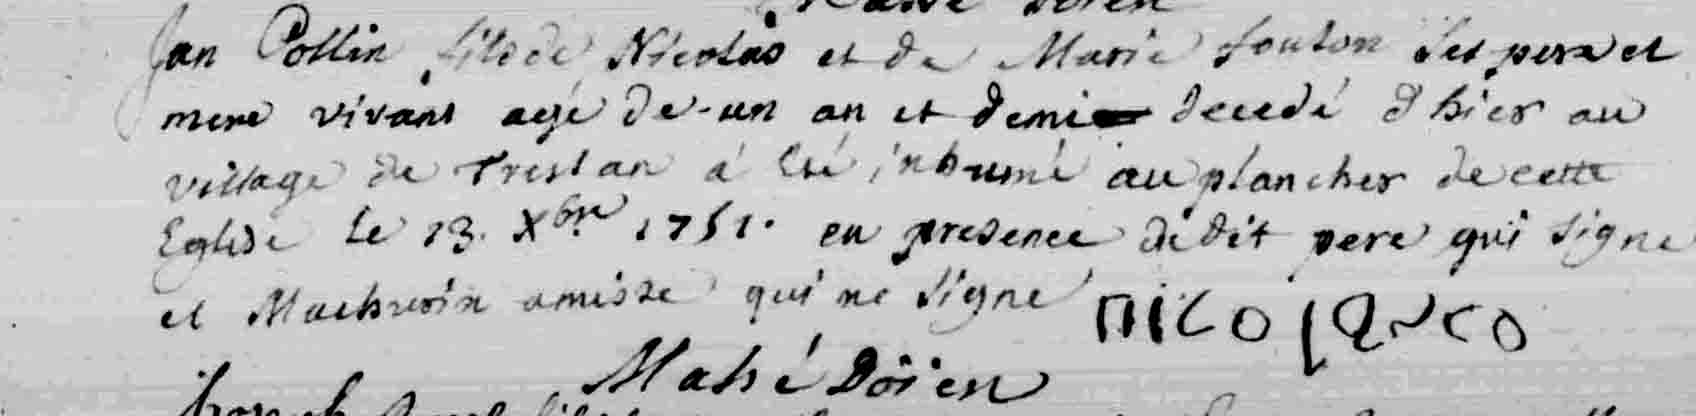 Jan Collin fils de Nicolas et de Marie foulon ses pere et
mere vivans agé de un an et demi decedé d'hier au
village de Trestan a eté inhumé au plancher de cette
Eglise le 13. Xbre 1751. en presence dudit pere qui signe
et amisse qui ne signe
Mahé Doien